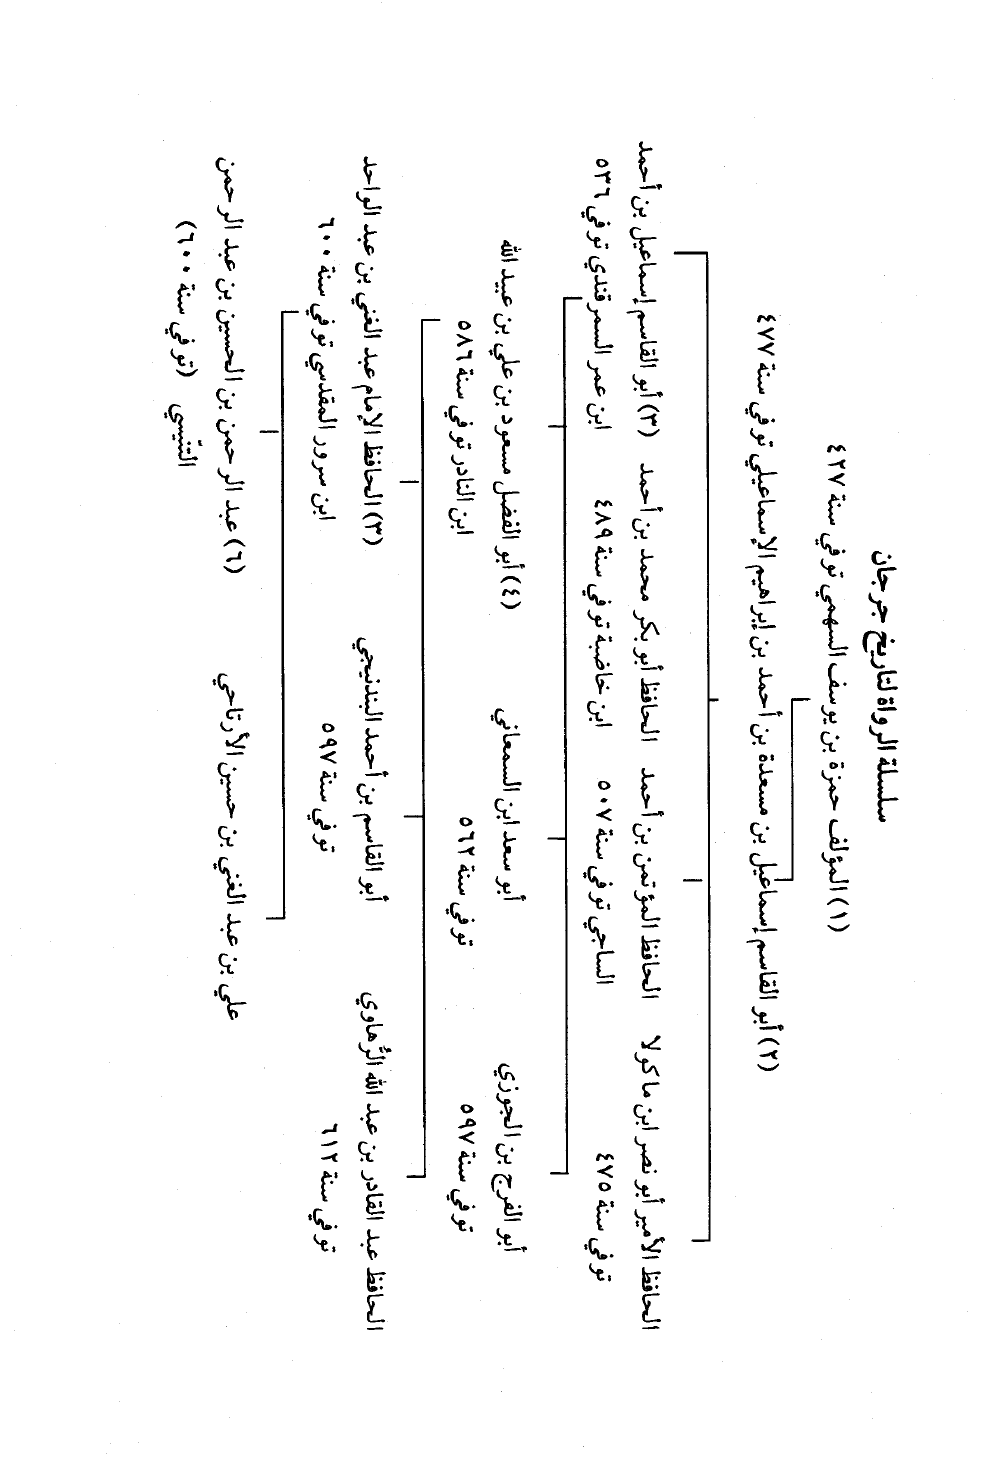 سلسلة الرواة لتاريخ جرجان
(١) المؤلف حمزة بن يوسف السهمي توفي سنة ٤٢٧
(٢) أبو القاسم إسماعيل بن مسعدة بن أحمد بن إبراهيم الإسماعيلي توفي سنة ٤٧٧
الحافظ الأمير أبو نصر ابن ماكولا
توفي سنة ٤٧٥
الحافظ المؤتمن بن أحمد
الساجي توفي سنة ٥٠٧
الحافظ أبو بكر محمد بن أحمد
ابن خاضبة توفي سنة ٤٨٩
(٣) أبو القاسم إسماعيل بن أحمد
ابن عمر السمرقندي توفي ٥٣٦
أبو الفرج بن الجوزي
توفي سنة ٥٩٧
أبو سعد ابن السمعاني
توفي سنة ٥٦٢
(٤) أبو الفضل مسعود بن علي بن عبيد الله
ابن النادر توفي سنة ٥٨٦
الحافظ عبد القادر بن عبد الله الرُّهاوي
توفي سنة ٦١٢
أبو القاسم بن أحمد البندنيجي
توفي سنة ٥٩٧
(٣) الحافظ الإمام عبد الغني بن عبد الواحد
ابن سرور المقدسي توفي سنة ٦٠٠
علي بن عبد الغني بن حسين الأرتاحي
(٦) عبد الرحمن بن الحسين بن عبد الرحمن
التّنيسي (توفي سنة ٦٠٠)